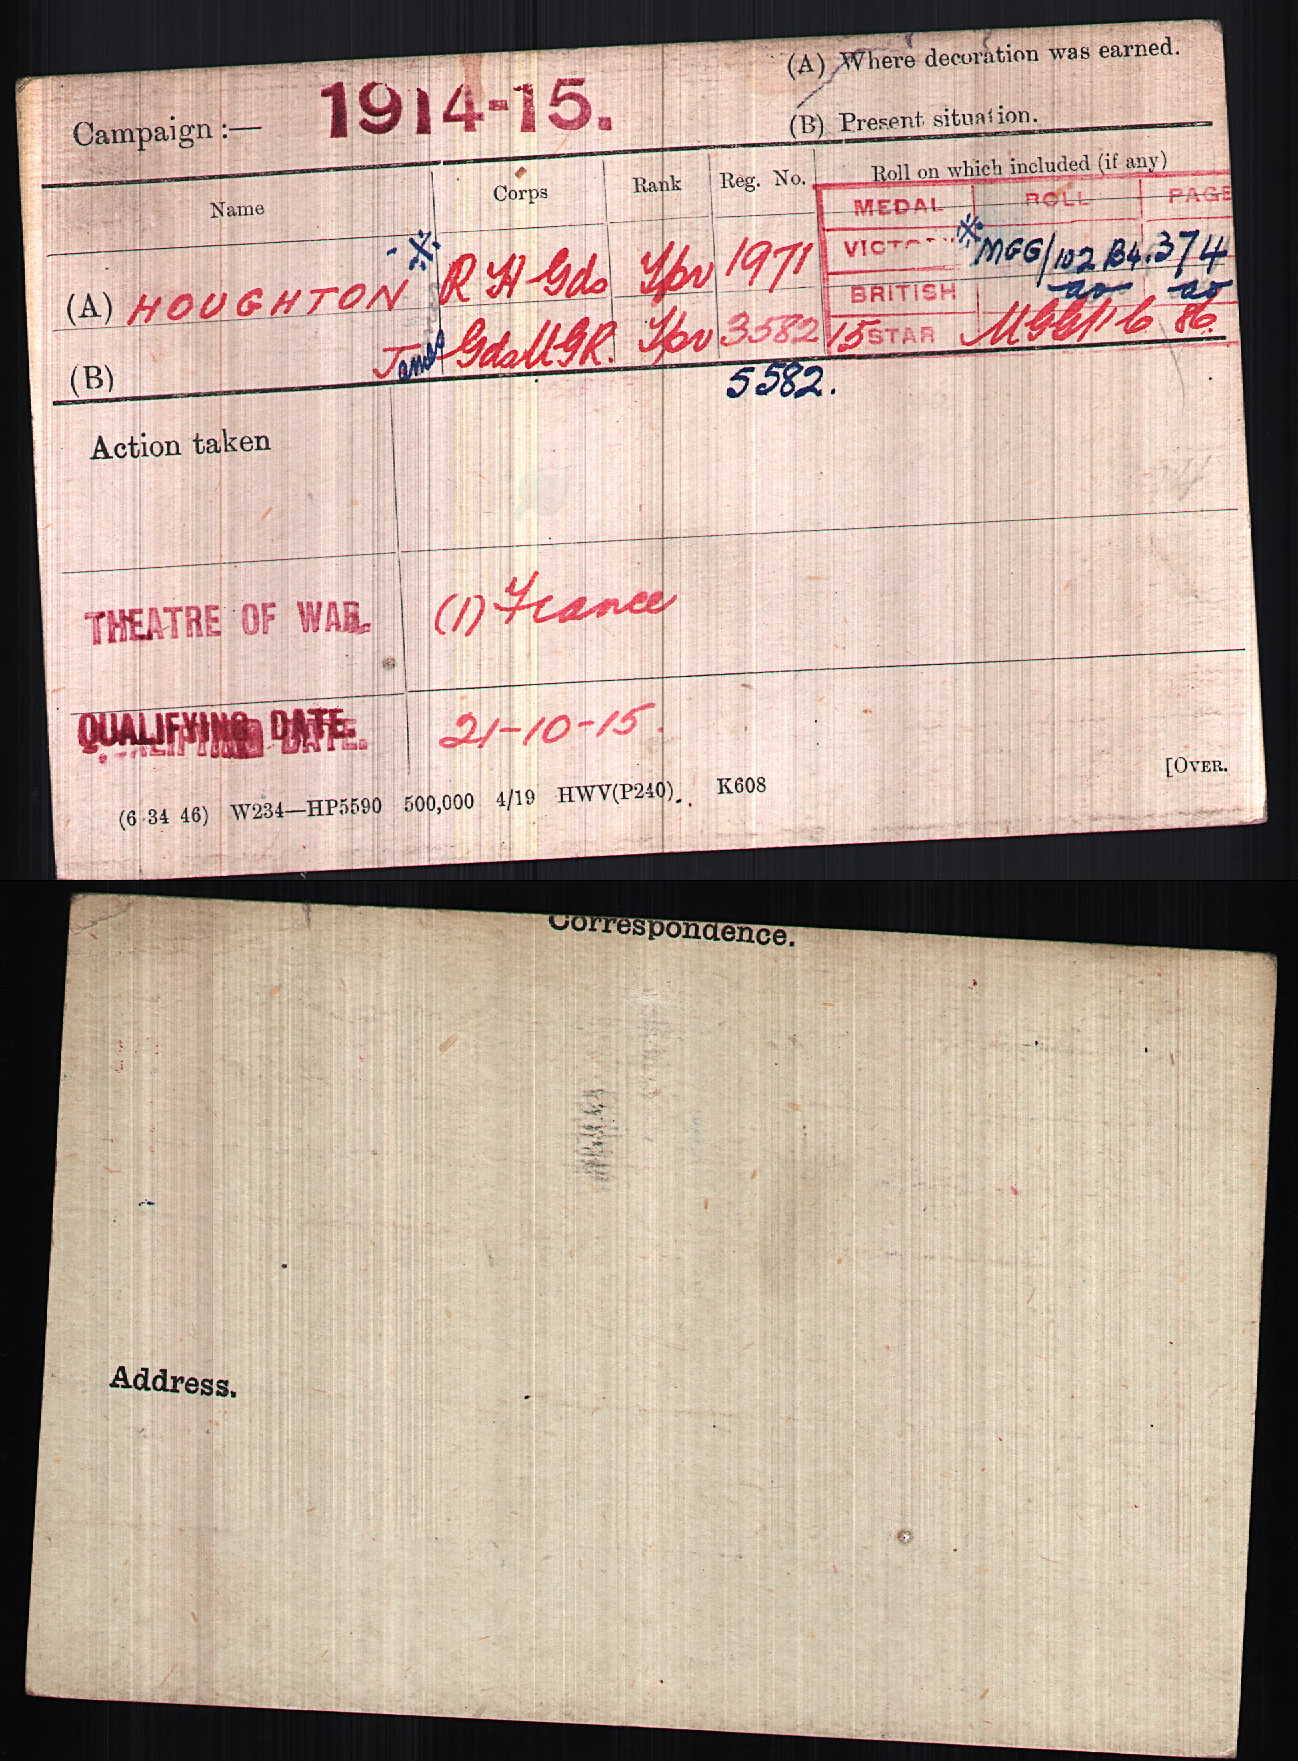 (A) Where decoration was earned.
Campaign :— 1914-15.
(B) Present situation.
Name Corps Rank Reg. No. Roll on which included (if any)
MEDAL ROLL PAGE
(A) HOUGHTON R H Gds Tpr 1971 VICTORY MGG/102 B4. 374
BRITISH do do
(B) James Gds M G R. Tpr 3582 15 STAR MGG/1 b 86.
5582.
Action taken
THEATRE OF WAR. (1) France
QUALIFYING DATE. 21-10-15.
[OVER.
(6 34 46) W234—HP5590 500,000 4/19 HWV(P240) K608
Correspondence.
Address.